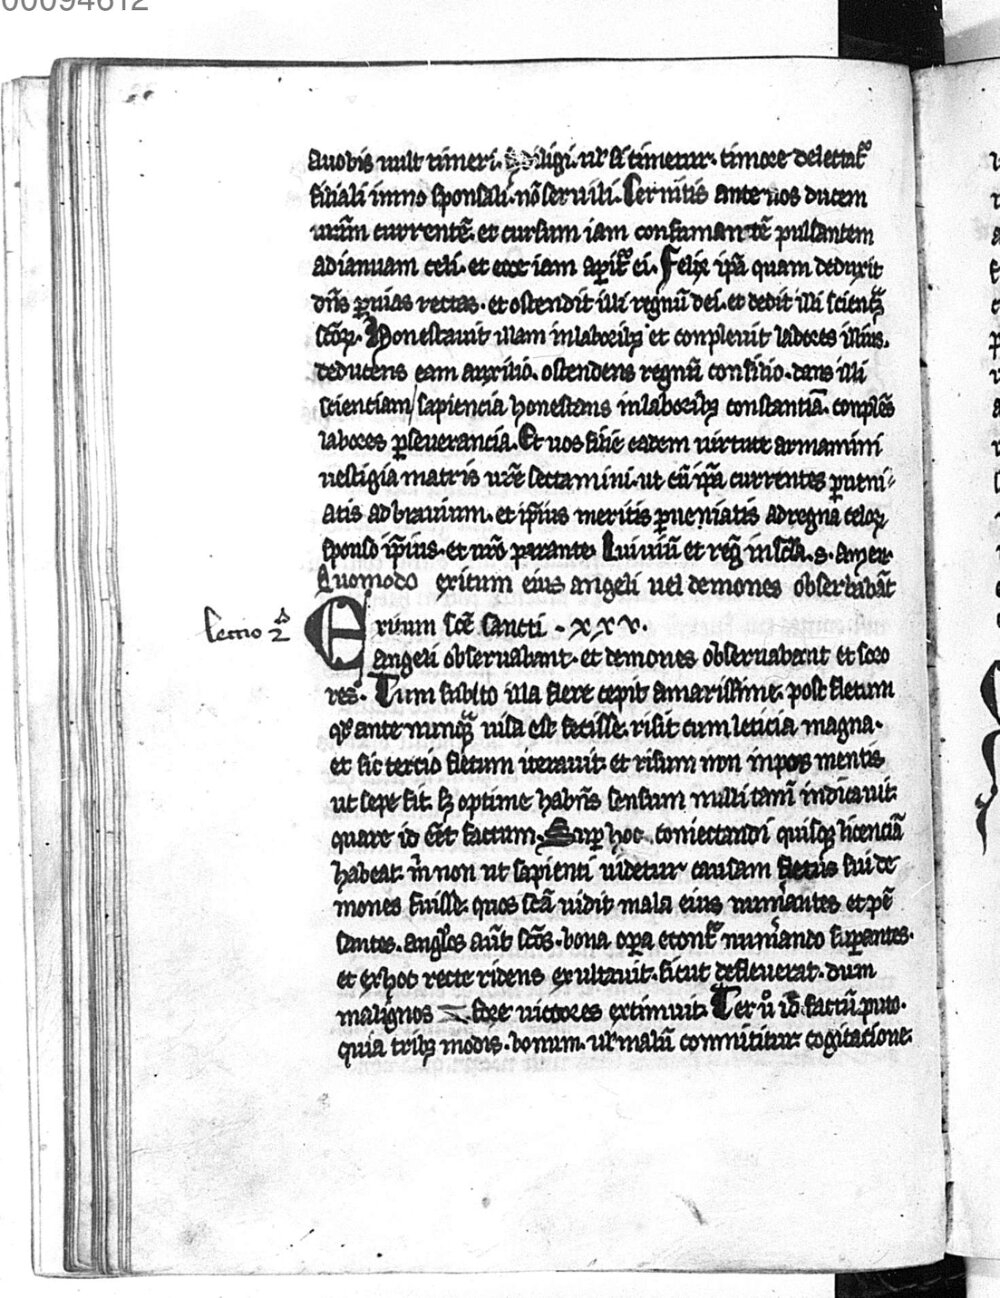 00094612
auobis uult timeri. diligi. ul' si timetur. timore delectat᷑
filiali immo sponsali. nō seruili. Cernitis ante uos ducem
ur̄am currentē. et cursum iam consumantē pulsantem
adianuam celi. et ecce iam apit᷑ ei. Felix ip̄a quam deduxit
dn̄s ꝑuias rectas. et ostendit illi regnū dei. et dedit illi scientiā
scōꝝ. Honestauit illam inlaboribꝫ et conpleuit labores illius.
deducens eam auxilio. ostendens regnū consilio. dans illi
scienciam/sapiencia honestans inlaboribꝫ constantiā. conplēs
labores ꝑseuerancia. Et uos filie eadem uirtute armamini
uestigia matris ur̄e sectamini. ut cū ip̄a currentes ꝑueni-
atis ad brauium. et ip̄ius meritis ꝑueniatis adregna celoꝝ
sponso ip̄ius. et nr̄o parante. Qui uiuit et reḡ in scl̄a. s. amen.
Quomodo exitum eius angeli uel demones obserbabāt
Exitum scē sancti - xxv.
Lectio 2
angeli obseruabant. et demones obseruabant et soro
res. Tum subito illa flere cepit amarissime. post fletum
qd' ante nunqꝫ uisa est fecisse. risit cum leticia magna.
et sic tercio fletum iterauit. et risum non inpos mentis
ut sepe fit. sꝫ optime habn̄s sensum nulli tam̄ indicauit.
quare id eēt factum. Suꝑ hoc coniectandi quisqꝫ licenciā
habeat. m̄ non ut sapienti uidetur causam fletus sui de
mones fuisse. quos scā uidit mala eius numantes et pē
santes. angl'os aūt scōs. bona oꝑa econt᷑ numando suꝑantes.
et exhoc recte ridens exultauit. sicut defleuerat. dum
malignos fore uictores extimuit. Ter ū id factū puto.
quia tribꝫ modis. bonum. ul' malū conmittitur. cogitatione.